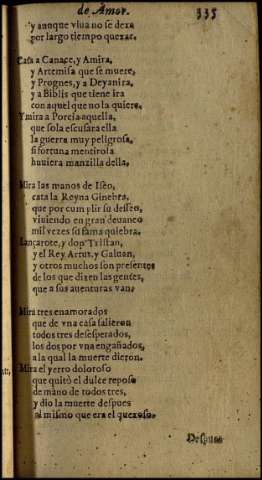 de Amor.
335
y aunque viua no se dexa
por largo tiempo quexar.
Cata a Canaçe, y Amira,
y Artemisa que se muere,
y Prognes, y a Deyanira,
y a Biblis que tiene ira
con aquel que no la quiere.
Y mira a Porcia aquella,
que sola escusara ella
la guerra muy peligrosa,
si fortuna mentirosa
huuiera manzilla della.
Mira las manos de Iseo,
cata la Reyna Ginebra,
que por cumplir su desseo,
viuiendo en gran deuaneo
mil vezes su fama quiebra.
Lançarote, y don Tristan,
y el Rey Artur, y Galuan,
y otros muchos son presentes
de los que dizen las gentes,
que a sus auenturas van.
Mira tres enamorados
que de vna casa salieron
todos tres desesperados,
los dos por vna engañados,
a la qual la muerte dieron.
Mira el yerro doloroso
que quitò el dulce reposo
de mano de todos tres,
y dio la muerte despues
al mismo que era el quexoso.
Despues